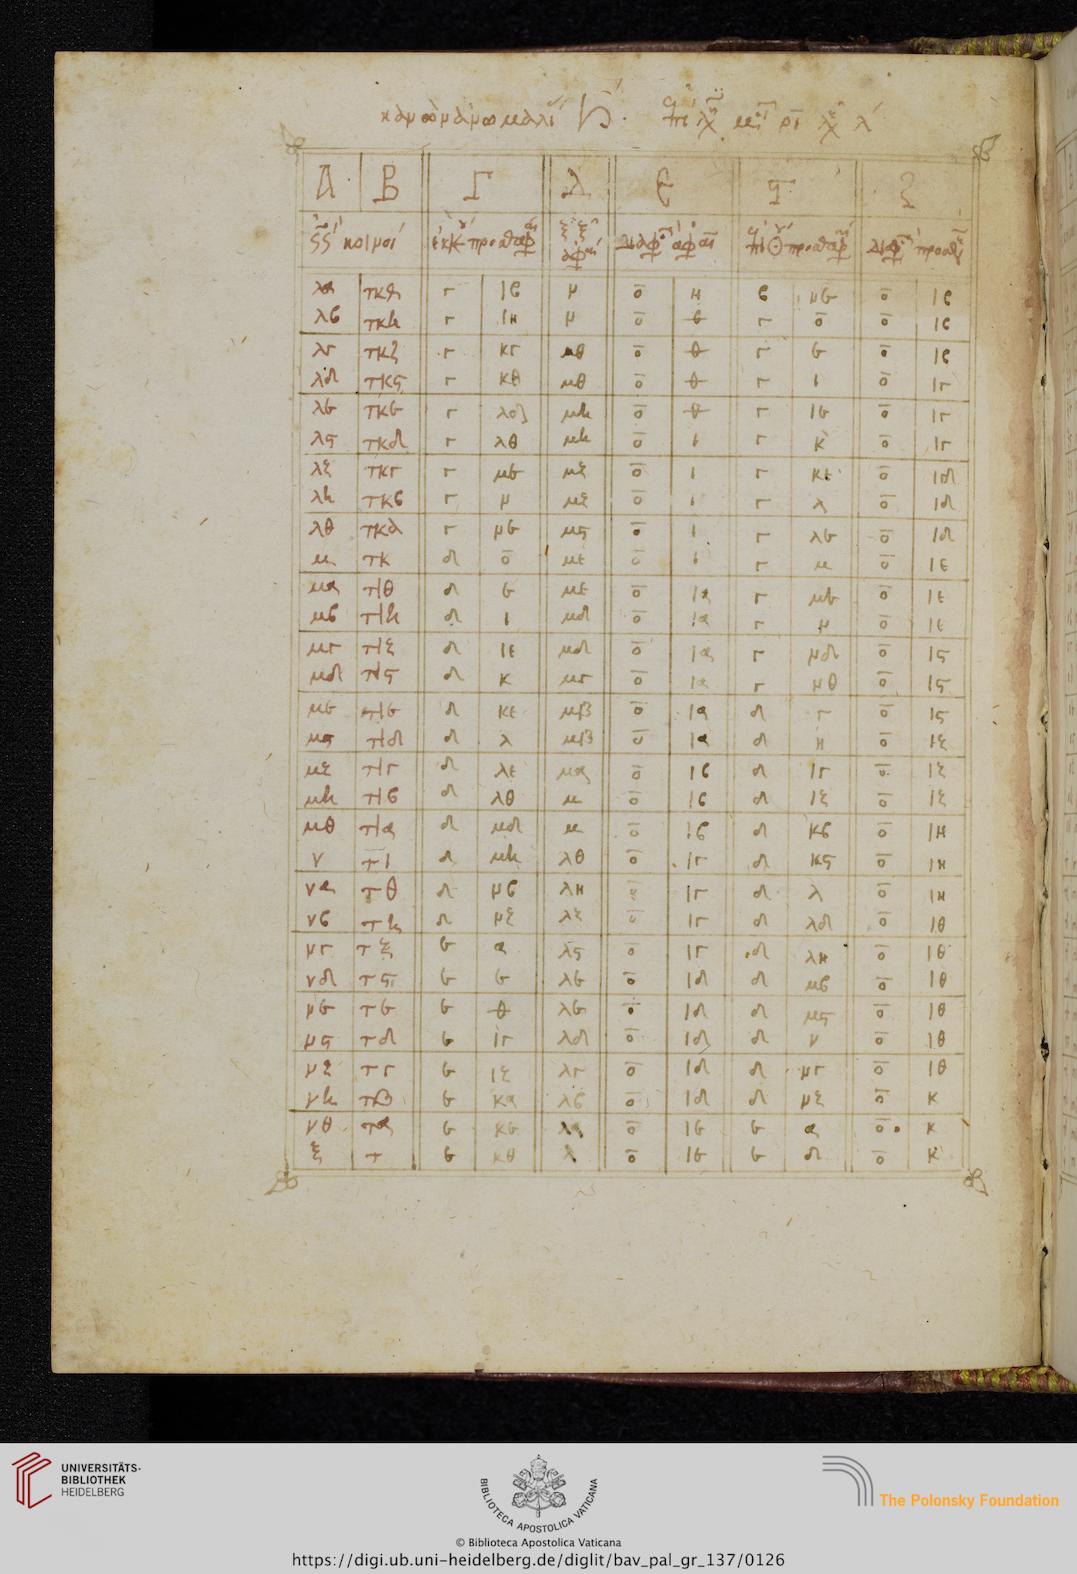 Α Β Γ Δ Ε Ϛ Ζ
κοινοι
λα τκθ γ ιβ ν ο η β νε ο ιβ
λβ τκη γ ιη ν ο ε γ ο ο ιβ
λγ τκζ γ κγ μθ ο θ γ ε ο ιβ
λδ τκϛ γ κθ μθ ο θ γ ι ο ιγ
λε τκε γ λδ μη ο θ γ ιε ο ιγ
λϛ τκδ γ λθ μη ο ι γ κ ο ιγ
λζ τκγ γ με μζ ο ι γ κε ο ιδ
λη τκβ γ ν μζ ο ι γ λ ο ιδ
λθ τκα γ νε μϛ ο ι γ λε ο ιδ
μ τκ δ ο με ο ι γ μ ο ιε
μα τιθ δ ε με ο ια γ με ο ιε
μβ τιη δ ι μδ ο ια γ ν ο ιε
μγ τιζ δ ιε μδ ο ια γ νδ ο ιϛ
μδ τιϛ δ κ μγ ο ια γ νθ ο ιϛ
με τιε δ κε μβ ο ια δ γ ο ιϛ
μϛ τιδ δ λ μβ ο ια δ η ο ιζ
μζ τιγ δ λε μα ο ιβ δ ιγ ο ιζ
μη τιβ δ λθ μ ο ιβ δ ιζ ο ιζ
μθ τια δ μδ μ ο ιβ δ κβ ο ιη
ν τι δ μη λθ ο ιγ δ κϛ ο ιη
να τθ δ νβ λη ο ιγ δ λ ο ιη
νβ τη δ νζ λζ ο ιγ δ λδ ο ιθ
νγ τζ ε α λϛ ο ιγ δ λη ο ιθ
νδ τϛ ε ε λε ο ιδ δ μβ ο ιθ
νε τε ε θ λε ο ιδ δ μϛ ο ιθ
νϛ τδ ε ιγ λδ ο ιδ δ ν ο ιθ
νζ τγ ε ιζ λγ ο ιδ δ νγ ο ιθ
νη τβ ε κα λβ ο ιδ δ νζ ο κ
νθ τα ε κε λα ο ιε ε α ο κ
ξ τ ε κθ λ ο ιε ε δ ο κ
UNIVERSITÄTS-
BIBLIOTHEK
HEIDELBERG
BIBLIOTECA APOSTOLICA VATICANA
The Polonsky Foundation
© Biblioteca Apostolica Vaticana
https://digi.ub.uni-heidelberg.de/diglit/bav_pal_gr_137/0126